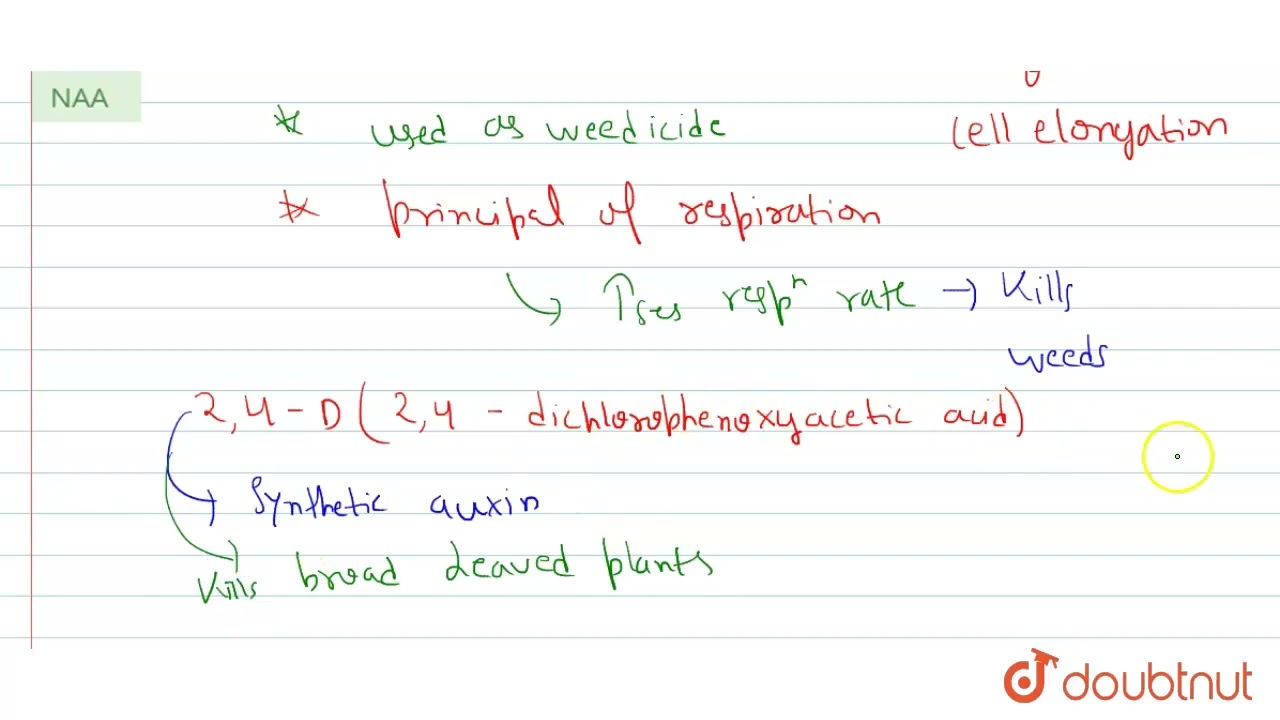 NAA
* used as weedicide
cell elongation
* principal of respiration
↳ ↑ses respⁿ rate → kills
weeds
2,4-D (2,4 - dichlorophenoxyacetic acid)
→ Synthetic auxin
→ kills broad leaved plants
doubtnut